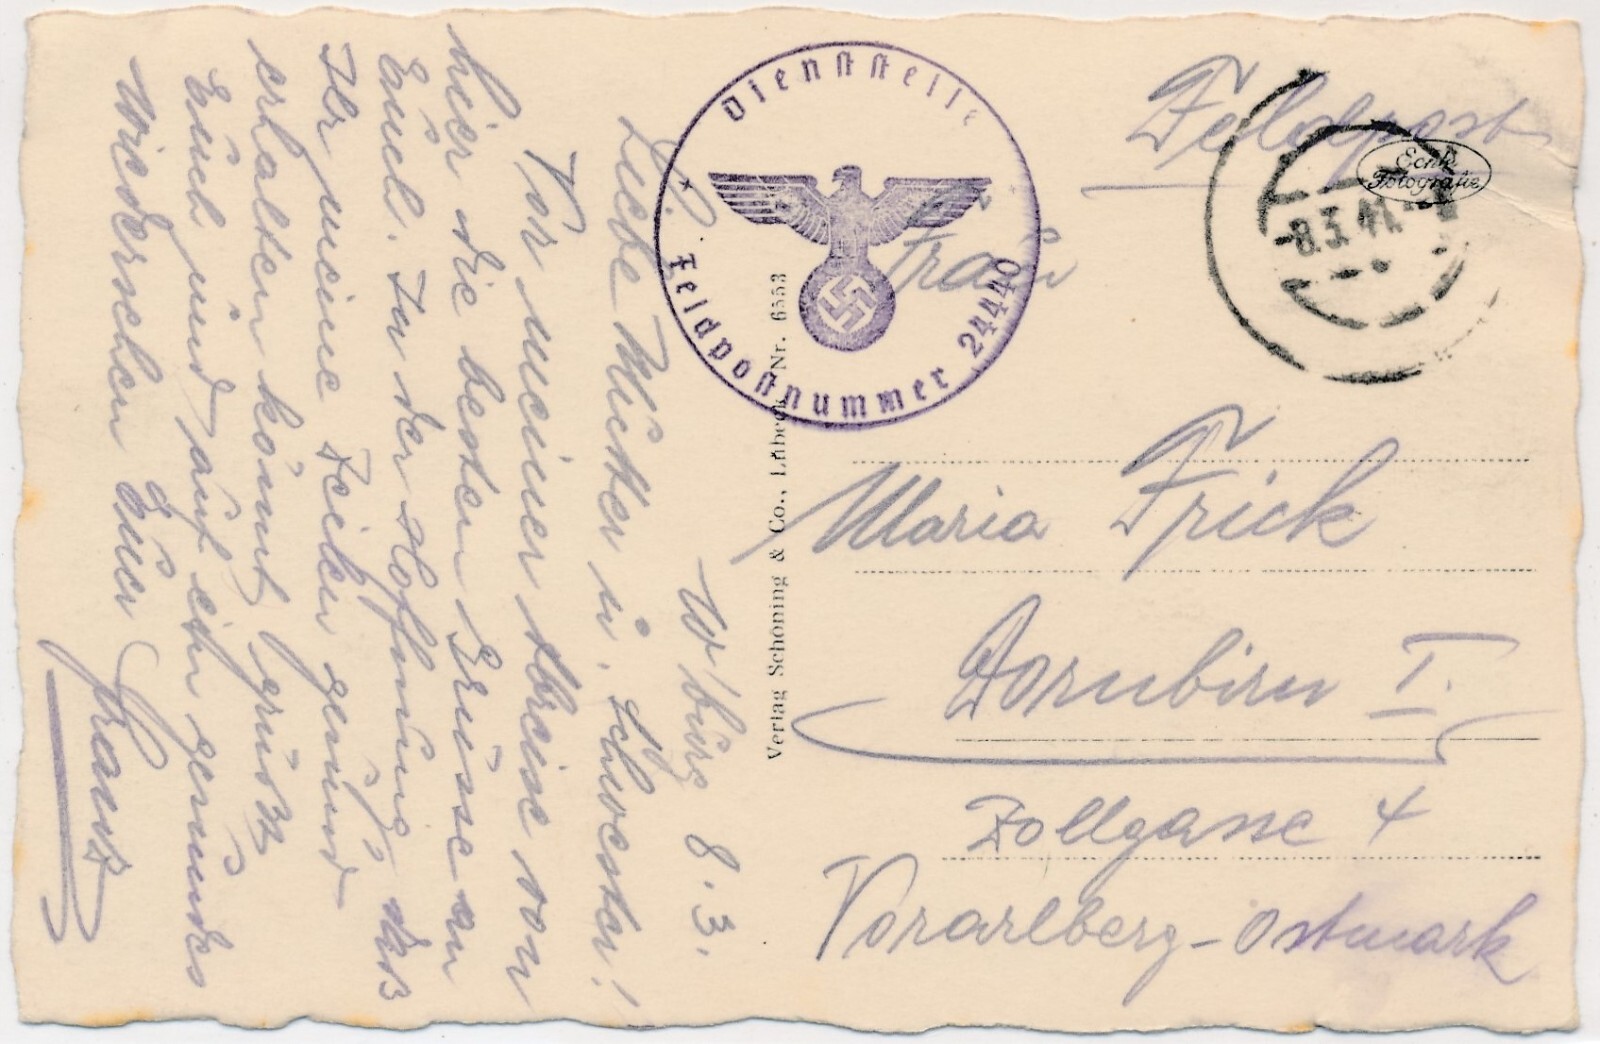 W'burg 8.3.
Liebe Mutter u. Schwester!
Vor meiner Abreise von
hier die besten Grüsse an
Euch. In der Hoffnung, dass
Ihr meine Zeilen gesund
erhalten könnt grüsst
Euch und auf ein gesundes
Wiedersehen Euer
Franz
Dienststelle
Feldpostnummer 24440
Verlag Schöning & Co., Lübeck Nr. 6553
Feldpost
Echte
Fotografie
-8.3.41.-
Frau
Maria Frick
Dornbirn I.
Zollgasse 4
Vorarlberg - Ostmark